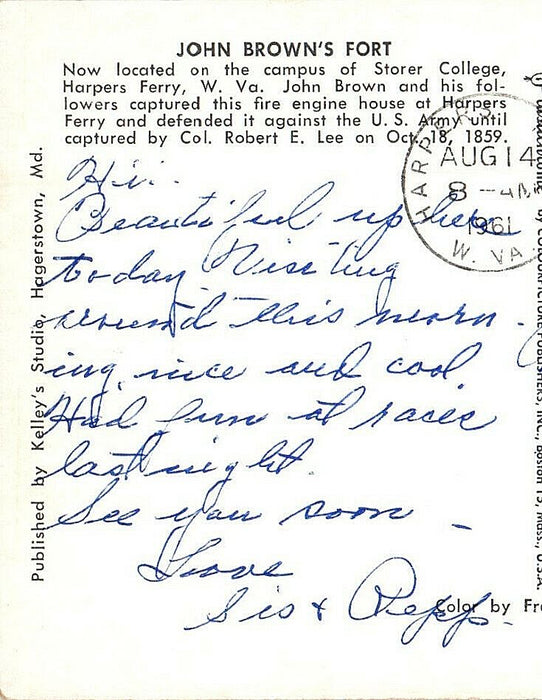 JOHN BROWN'S FORT
Now located on the campus of Storer College,
Harpers Ferry, W. Va. John Brown and his fol-
lowers captured this fire engine house at Harpers
Ferry and defended it against the U. S. Army until
captured by Col. Robert E. Lee on Oct. 18, 1859.
HARPERS
AUG 14
8 - AM
1961
W. VA
Hi.
Beautiful up here
today. Visiting
around this morn -
ing, nice and cool.
Had fun at races
last night.
See you soon -
Love
Sis + Pepp.
Published by Kelley's Studio, Hagerstown, Md.
Publishers, Inc., Boston 15, Mass., U.S.A.
Color by Fr